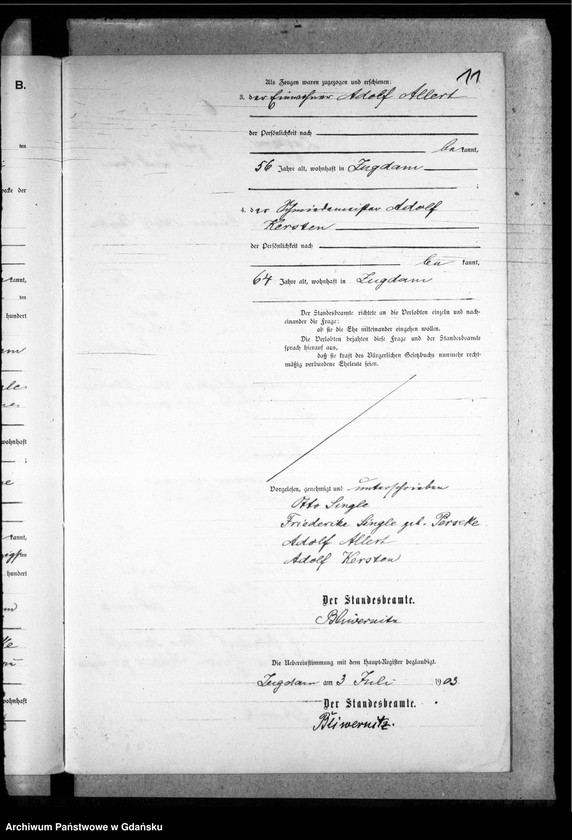 B.
11
Als Zeugen waren zugezogen und erschienen:
3. der Einwohner Adolf Allert
der Persönlichkeit nach
be kannt,
56 Jahre alt, wohnhaft in Zugdam
;
4. der Schmiedemeister Adolf
Kersten
der Persönlichkeit nach
be kannt,
64 Jahre alt, wohnhaft in Zugdam
Der Standesbeamte richtete an die Verlobten einzeln und nach-
einander die Frage:
ob sie die Ehe miteinander eingehen wollen.
Die Verlobten bejahten diese Frage und der Standesbeamte
sprach hierauf aus,
daß sie kraft des Bürgerlichen Gesetzbuchs nunmehr recht-
mäßig verbundene Eheleute seien.
Vorgelesen, genehmigt und unterschrieben
Otto Single
Friederike Single geb. Perseke
Adolf Allert
Adolf Kersten
Der Standesbeamte.
Bliwernitz
Die Uebereinstimmung mit dem Haupt-Register beglaubigt.
Zugdam am 3 Juli 1903
Der Standesbeamte.
Bliwernitz.
kannt,
hundert
wohnhaft
kannt,
hundert
wohnhaft
Archiwum Państwowe w Gdańsku